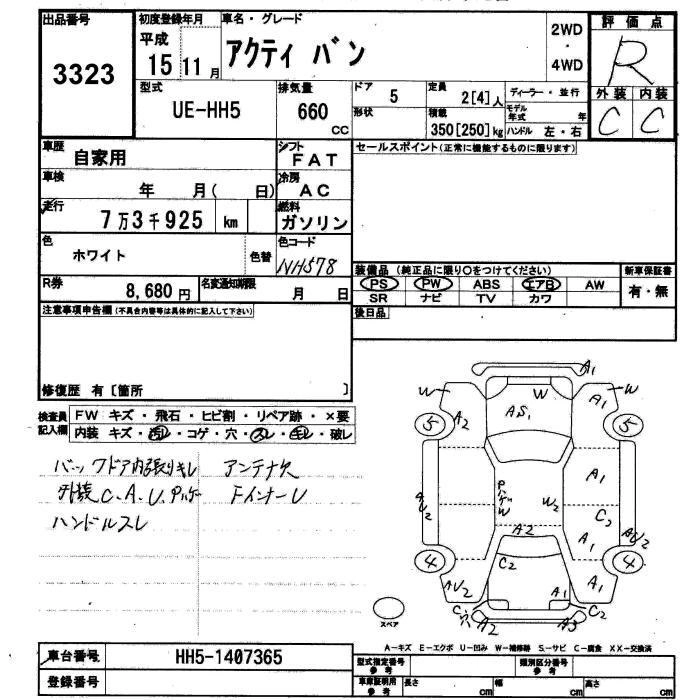 出品番号
3323
初度登録年月
平成
15 11月
車名・グレード
アクティ バン
2WD
・
4WD
評価点
R
外装 内装
C C
型式
UE-HH5
排気量
660
cc
ドア
5
形状
定員
2[4]人
積載
350[250]kg
ディーラー・並行
モデル年式 年
ハンドル 左・右
車歴
自家用
シフト
FAT
車検
年 月( 日)
冷房
AC
走行
7万3千925 km
燃料
ガソリン
色
ホワイト
色替
色コード
NH578
R券
8,680円
名変通知期限
月 日
セールスポイント(正常に機能するものに限ります)
装備品 (純正品に限り○をつけてください)
PS PW ABS エアB AW
SR ナビ TV カワ
新車保証書
有・無
後日品
注意事項申告欄(不具合内容等は具体的に記入して下さい)
修復歴 有〔箇所 〕
検査員記入欄
FW キズ・飛石・ヒビ割・リペア跡・×要
内装 キズ・汚レ・コゲ・穴・スレ・キレ・破レ
バックドア内張りキレ アンテナ欠
外装C.A.U.Pハゲ FインナーU
ハンドルスレ
A1
W W W
A1
A2
AS1
5 5
Pハゲ
W
W2
A1
C2
A1
AU2
AU2
A2
4 4
C2
AU2
A1
A1
C2
C穴
A2
A3
スペア
A-キズ E-エクボ U-凹み W-補修跡 S-サビ C-腐食 XX-交換済
車台番号
HH5-1407365
登録番号
型式指定番号
参考
類別区分番号
参考
車庫証明用
参考
長さ cm
幅 cm
高さ cm